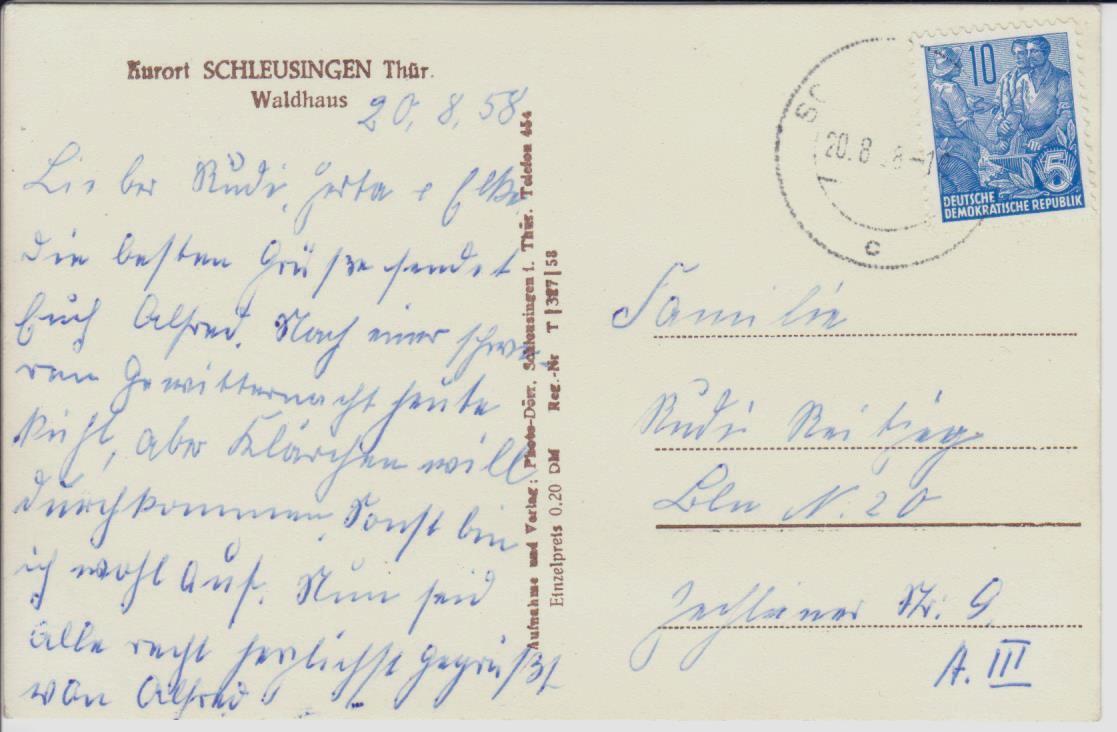 Kurort SCHLEUSINGEN Thür.
Waldhaus
20. 8. 58
Lieber Rudi, Herta + Elke
die besten Grüße sendet
Euch Alfred. Nach einer schwe-
ren Gewitternacht heute
kühl, aber Klärchen will
durchkommen. Sonst bin
ich wohl auf. Nun seid
alle recht herzlichst gegrüßt
von Alfred
Aufnahme und Verlag: Photo-Dörr, Schleusingen i. Thür. Telefon 454
Einzelpreis 0.20 DM Reg.-Nr T|327|58
20.8
c
10
5
DEUTSCHE
DEMOKRATISCHE REPUBLIK
Familie
Rudi
Bln N. 20
Zechliner Str. 9
A. III